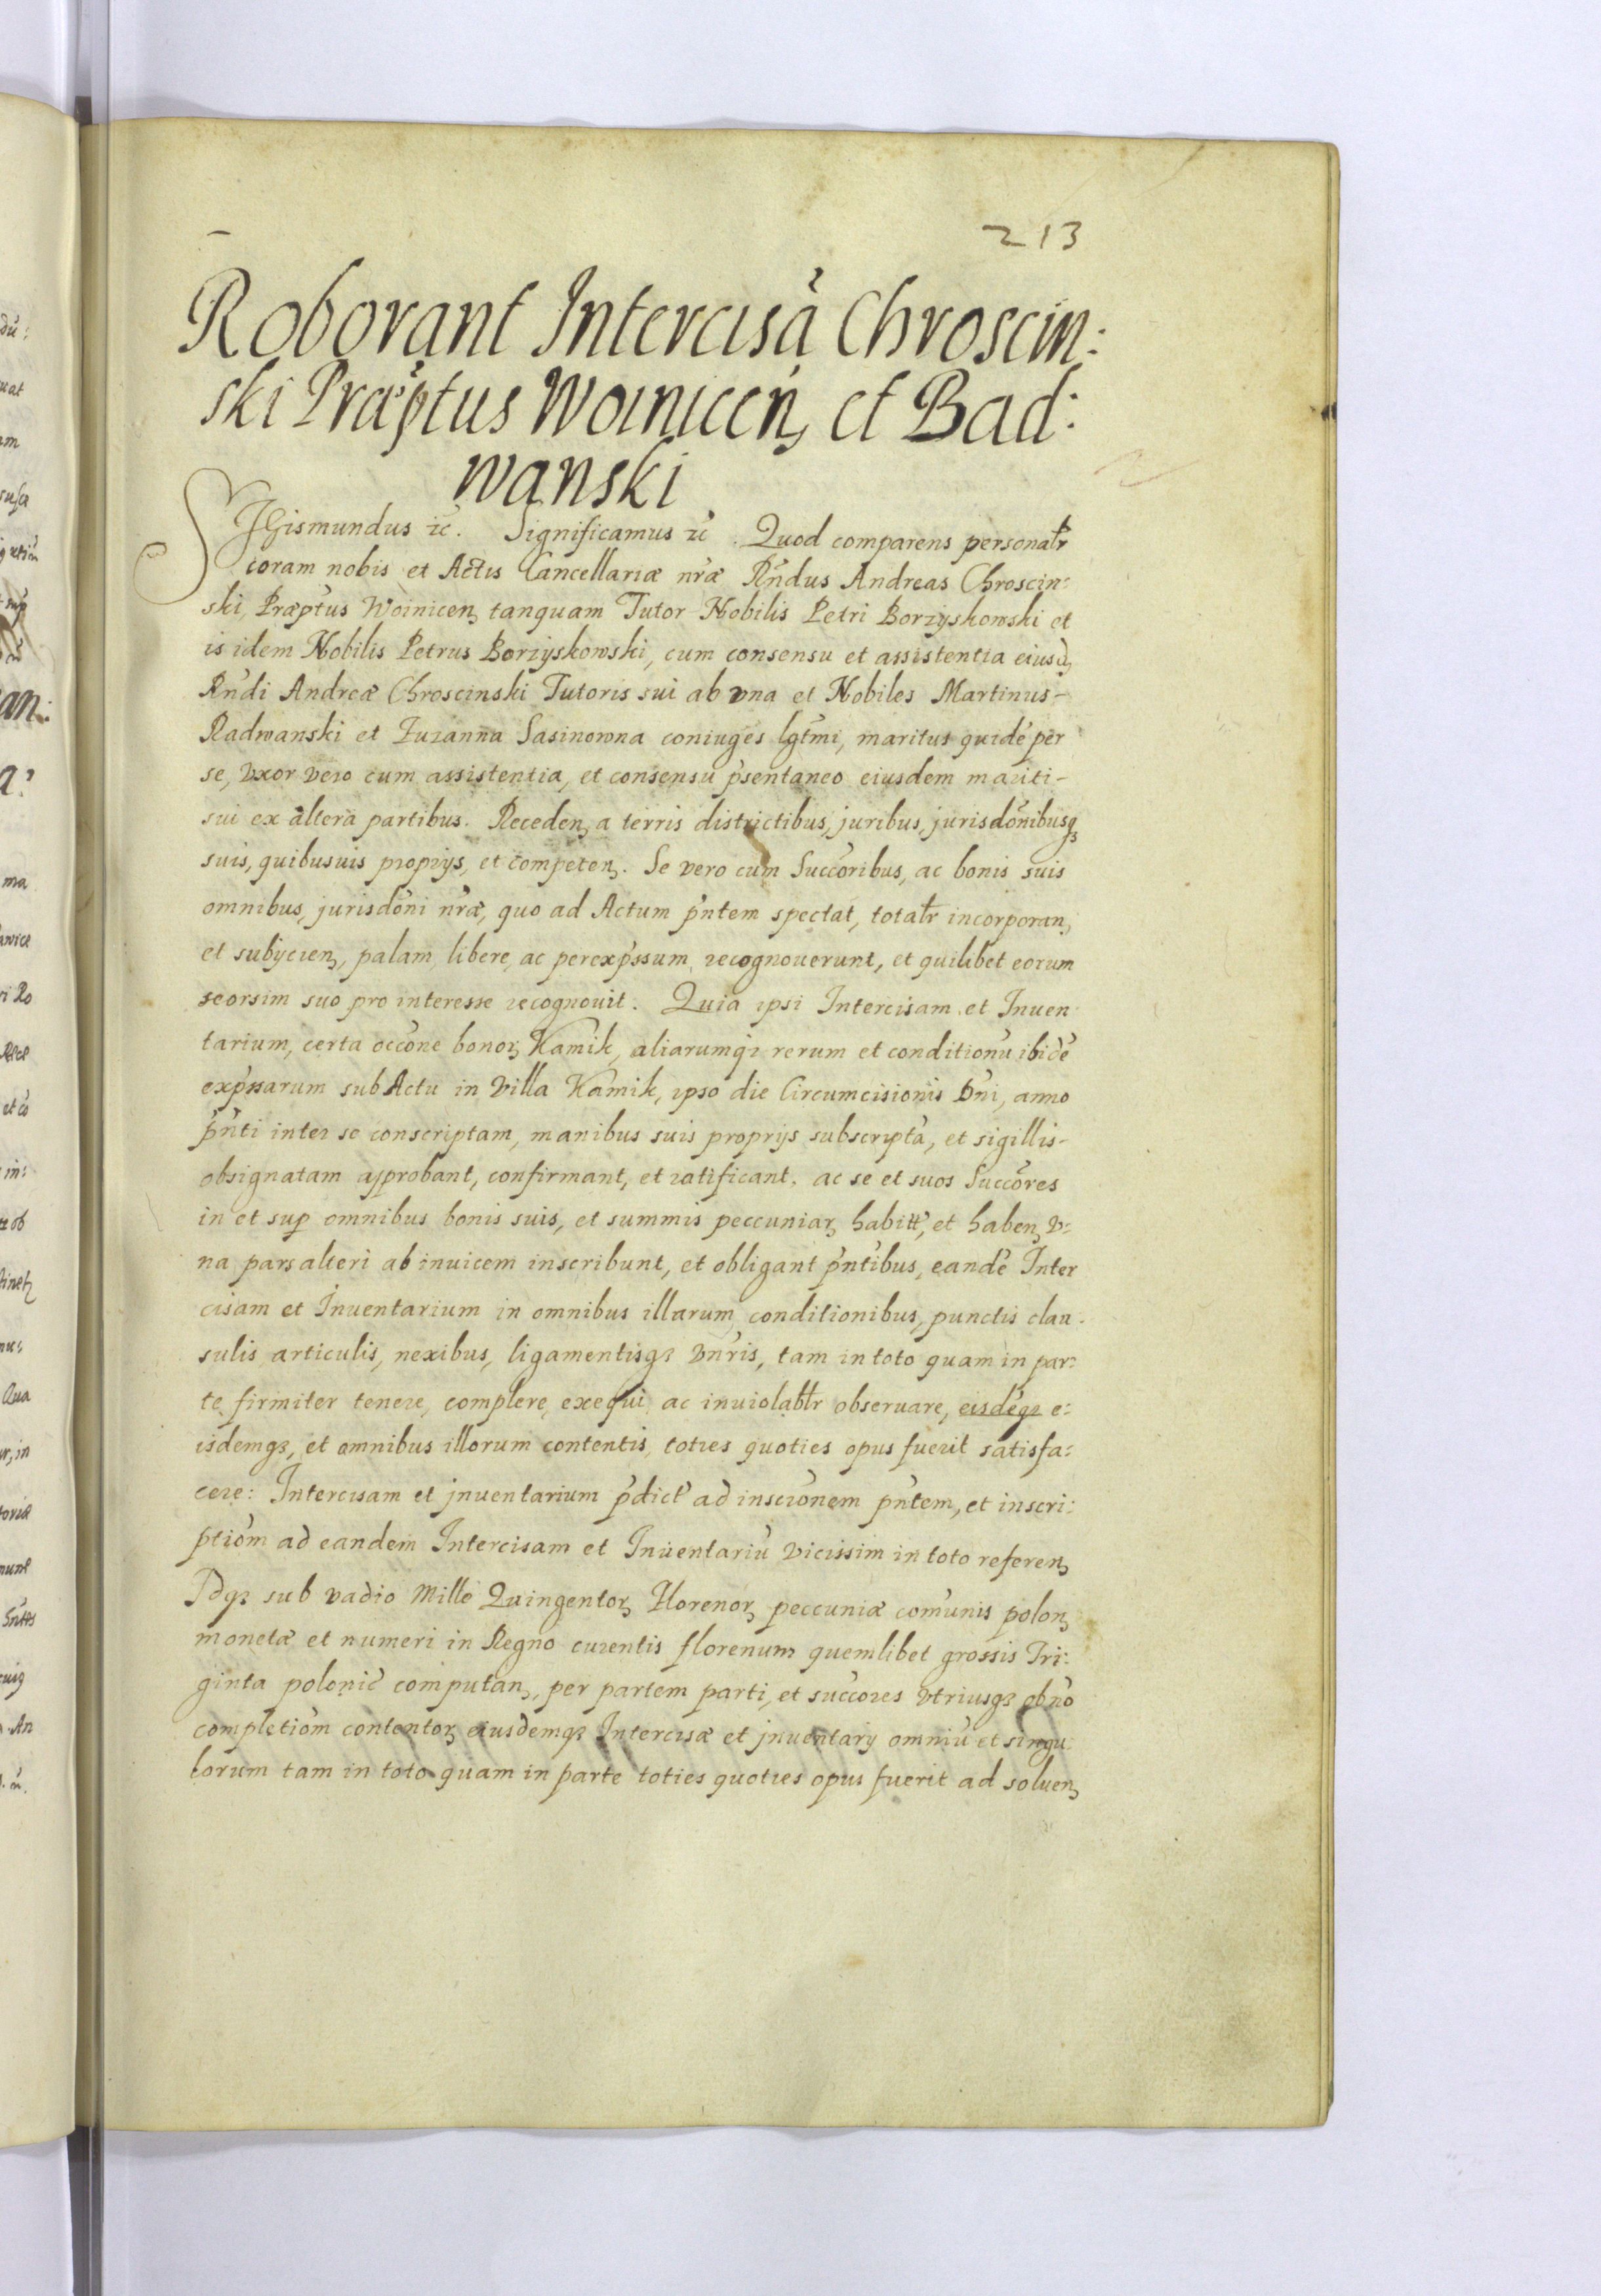 213
Roborant Intercisã Chroscin:
ski Præptus Woinicen, et Bad:
wanski
SIgismundus ꝛc. Significamus ꝛc. Quod comparens personalr
coram nobis et Actis Cancellariæ nr̃æ Rñdus Andreas Chroscin:
ski, Præptus Woinicen, tanquam Tutor Nobilis Petri Borzyskowski et
is idem Nobilis Petrus Borzyskowski, cum consensu et assistentia eiusd,
Rñdi Andreæ Chroscinski Tutoris sui ab vna et Nobiles Martinus-
Radwanski et Zuzanna Sasinowna coniuges lgt̃mi, maritus quidẽ per
se, vxor vero cum assistentia, et consensu p̃sentaneo eiusdem mariti-
sui ex altera partibus. Receden, a terris districtibus, juribus, jurisdõnibusqꝫ
suis, quibusuis proprijs, et competen. Se vero cum Succõribus, ac bonis suis
omnibus, jurisdõni nr̃æ, quo ad Actum p̃ntem spectat, totalr incorporan,
et subijcien, palam, libere, ac perexp̃ssum, recognouerunt, et quilibet eorum
seorsim suo pro interesse recognouit. Quia ipsi Intercisam et Inuen
tarium, certa occõne bonoꝝ Kamik, aliarumqꝫ rerum et conditionũ ibidẽ
exp̃ssarum sub Actu in Villa Kamik, ipso die Circumcisionis Dñi, anno
p̃nti inter se conscriptam, manibus suis proprijs subscriptã, et sigillis-
obsignatam approbant, confirmant, et ratificant. ac se et suos Succõres
in et sup omnibus bonis suis, et summis peccuniaꝝ habitt, et haben, v:
na pars alteri ab inuicem inscribunt, et obligant p̃ntibus, eandẽ Inter
cisam et Inuentarium in omnibus illarum conditionibus, punctis clau-
sulis, articulis, nexibus, ligamentisqꝫ vñris, tam in toto quam in par:
te firmiter tenere, complere, exequi, ac inuiolablr obseruare, eisdẽqꝫ e:
isdemqꝫ, et omnibus illorum contentis, toties quoties opus fuerit satisfa:
cere: Intercisam et jnuentarium p̃dict ad inscrõnem p̃ntem, et inscri:
ptiõm ad eandem Intercisam et Inuentariũ vicissim in toto referen,
Idqꝫ sub vadio Mille Quingentoꝝ Florenoꝝ peccuniæ com̃unis polon,
monetæ et numeri in Regno curentis florenum quemlibet grossis Tri:
ginta polonic computan, per partem parti, et succores vtriusqꝫ ob nõ
completiõm contentoꝝ eiusdemqꝫ Intercisæ et jnuentarij omniũ et singu
lorum tam in toto quam in parte toties quoties opus fuerit ad soluen,